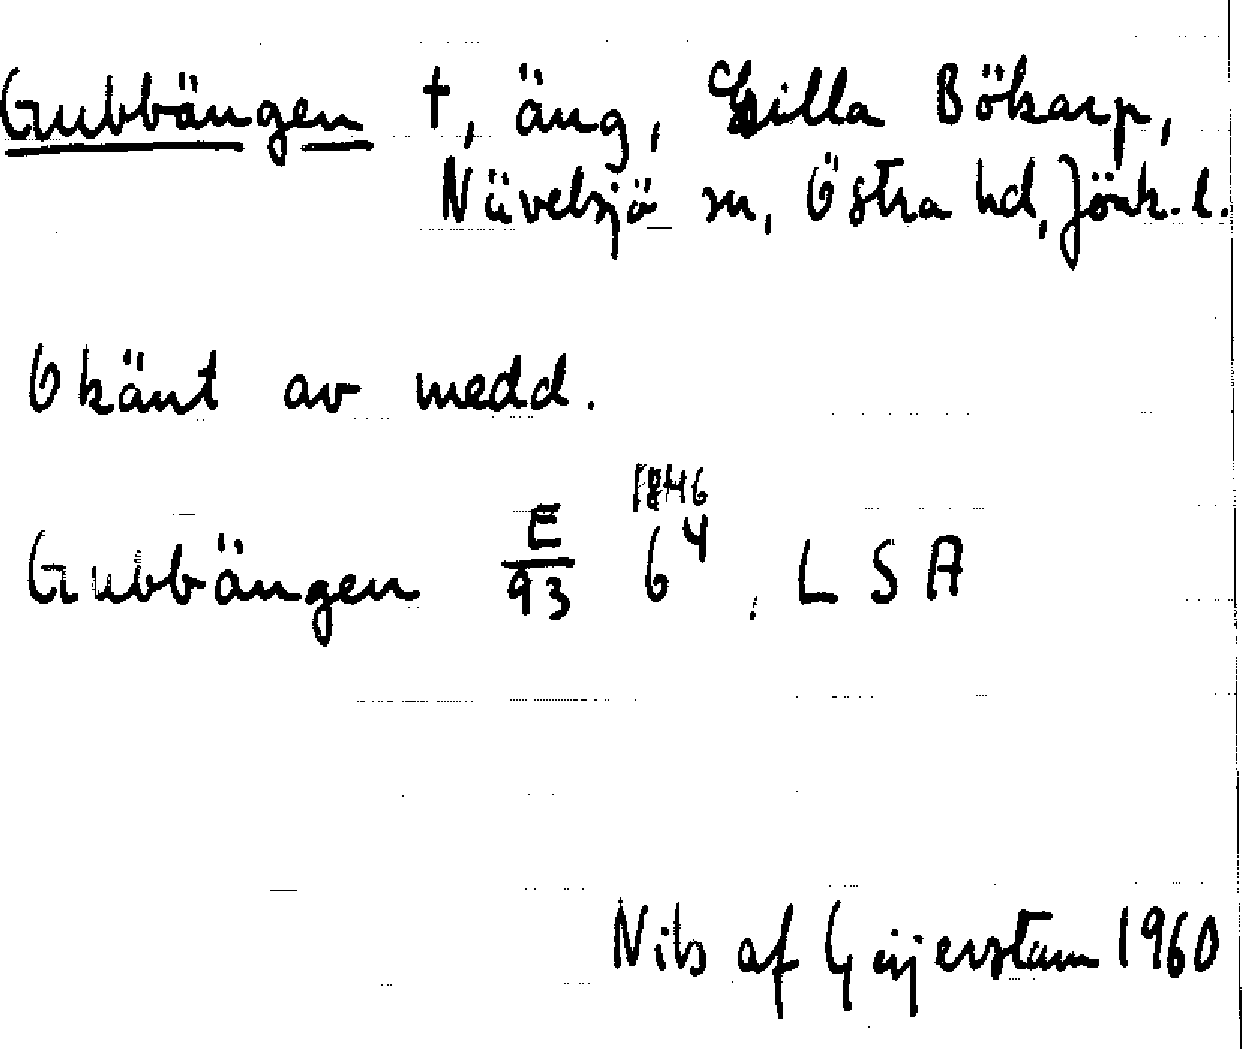 Gubbängen †, äng, Lilla Bökarp,
Nävelsjö sn, Östra hd, Jönk. l.
Okänt av medd.
1846
Gubbängen E/93 6⁴, LSA
Nils af Geijerstam 1960